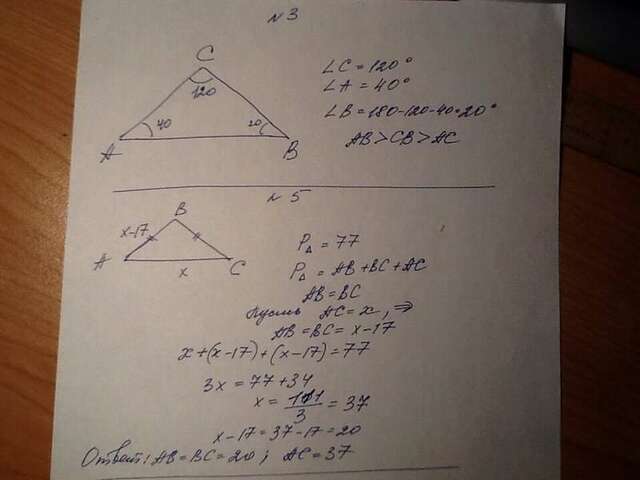 №3
C
120
40
20
A
B
∠C = 120°
∠A = 40°
∠B = 180-120-40=20°
AB > CB > AC
№5
B
x-17
A
x
C
P△ = 77
P△ = AB+BC+AC
AB=BC
Пусть AC = x, ⇒
AB = BC = x-17
x+(x-17)+(x-17)=77
3x = 77+34
x = 111/3 = 37
x-17=37-17=20
Ответ: AB=BC=20; AC=37